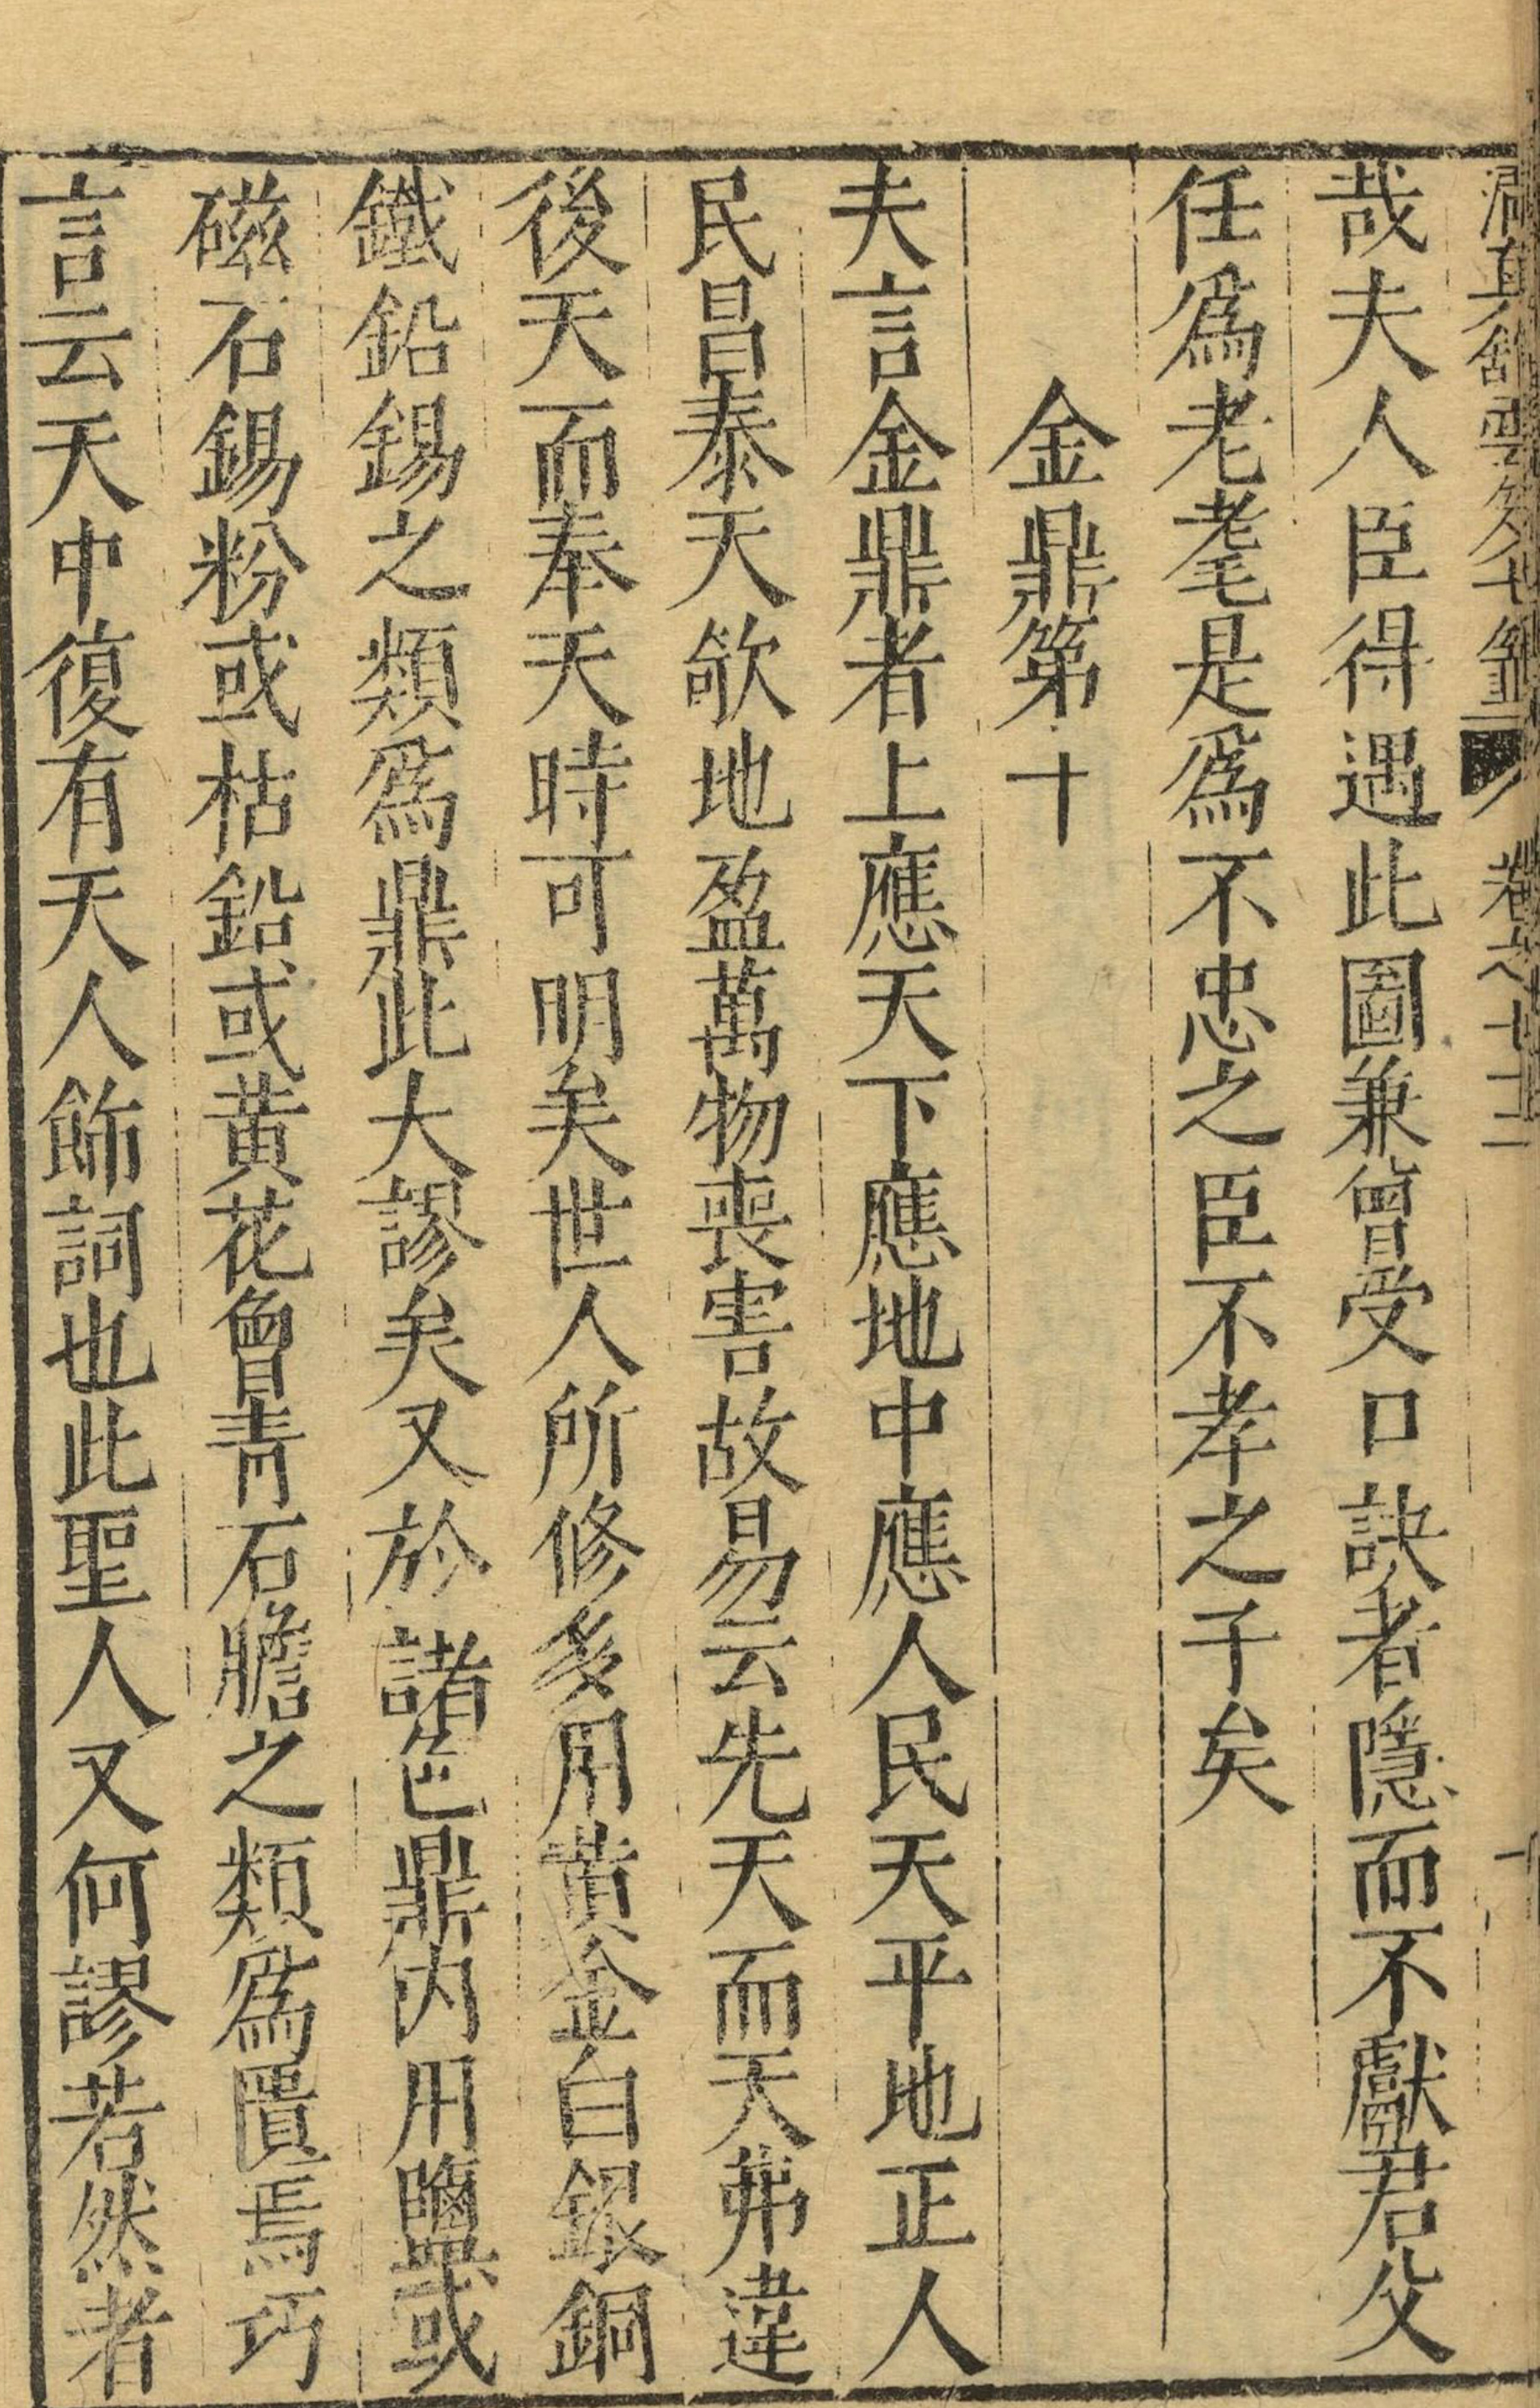 卷之七十二
哉夫人臣得遇此圖兼曾受口訣者隱而不獻君父
任爲老耄是爲不忠之臣不孝之子矣
金鼎第十
夫言金鼎者上應天下應地中應人民天平地正人
民昌泰天欹地盈萬物喪害故易云先天而天弗違
後天而奉天時可明矣世人所修多用黄金白銀銅
鐵鉛錫之類爲鼎此大謬矣又於諸色鼎内用鹽或
磁石錫粉或枯鉛或黄花曾青石膽之類爲匱焉巧
言云天中復有天人飾詞也此聖人又何謬若然者